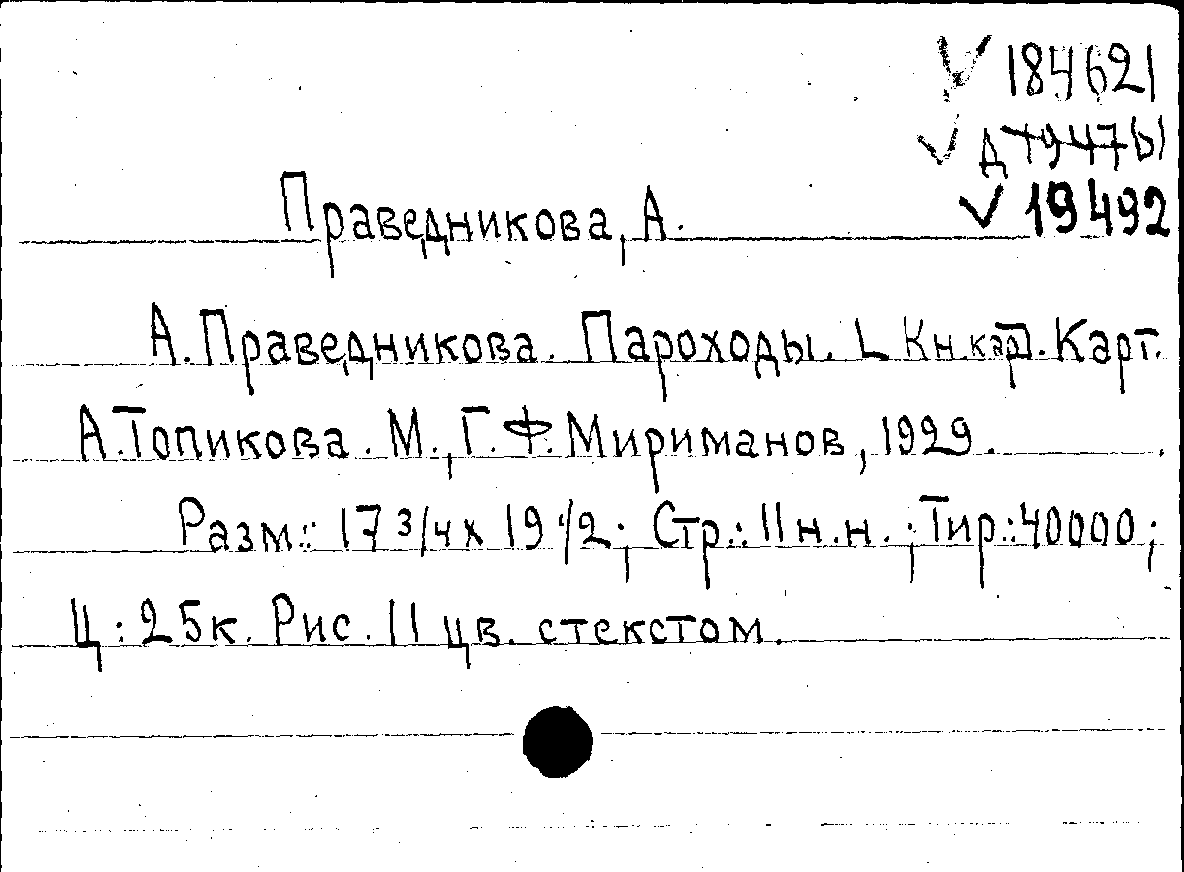 184621
Д 19476
19492
Праведникова, А.
А. Праведникова. Пароходы. Кн. карт. Карт.
А. Топикова. М., Г. Ф. Мириманов, 1929.
Разм.: 17 3/4 x 19 1/2; Стр.: 11 н.н.; Тир.: 40000;
Ц: 25к. Рис. 11 цв. с текстом.